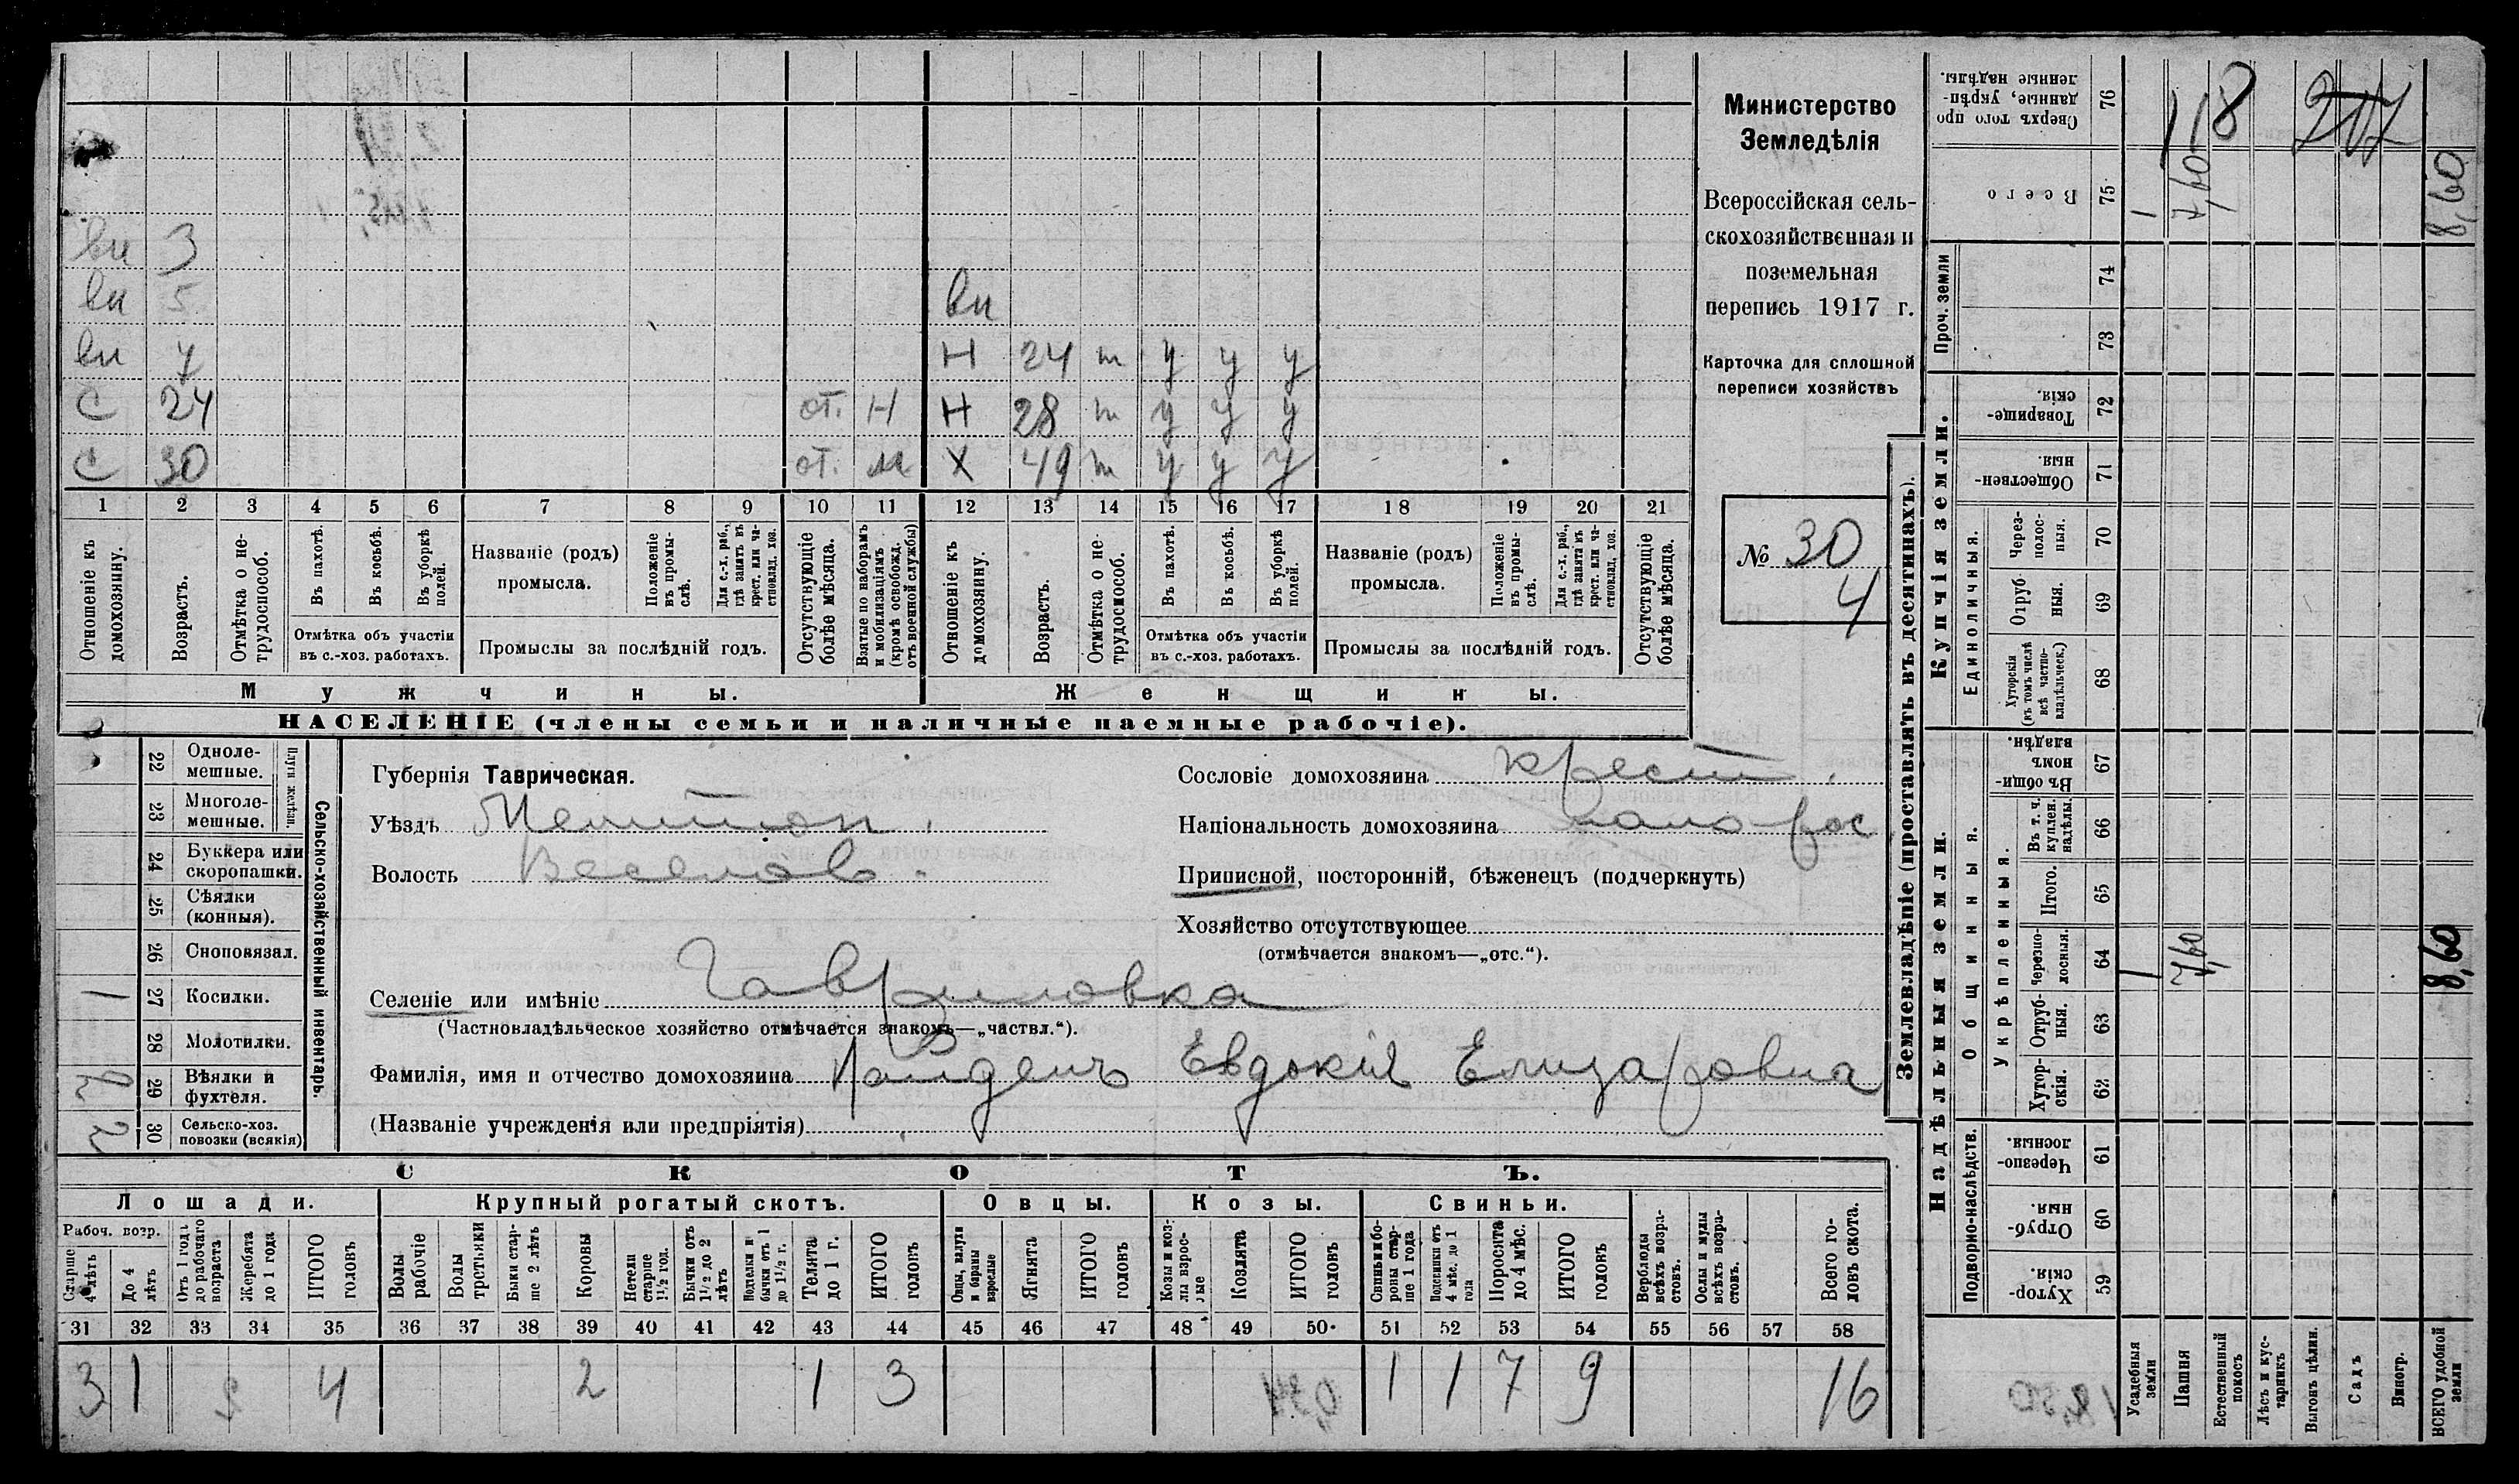 Министерство
Земледѣлія
Всероссійская сель-
скохозяйственная и
поземельная
перепись 1917 г.
Карточка для сплошной
переписи хозяйствъ
№ 30
4
вн 3
вн 5 вн
вн 7 Н 24 т у у у
С 24 от. Н Н 28 т у у у
С 30 от. м Х 49 т у у у
1 2 3 4 5 6 7 8 9 10 11 12 13 14 15 16 17 18 19 20 21
Отношеніе къ домохозяину.
Возрастъ.
Отмѣтка о не-трудоспособ.
Въ пахотѣ.
Въ косьбѣ.
Въ уборкѣ полей.
Отмѣтка объ участіи
въ с.-хоз. работахъ.
Названіе (родъ)
промысла.
Положеніе въ промы-слѣ.
Для с.-х. раб., гдѣ занятъ въ крест. или ча-стновлад. хоз.
Промыслы за послѣдній годъ.
Отсутствующіе болѣе мѣсяца.
Взятые по наборамъ и мобилизаціямъ (кромѣ освобожд. отъ военной службы)
Отношеніе къ домохозяину.
Возрастъ.
Отмѣтка о не-трудоспособ.
Въ пахотѣ.
Въ косьбѣ.
Въ уборкѣ полей.
Отмѣтка объ участіи
въ с.-хоз. работахъ.
Названіе (родъ)
промысла.
Положеніе въ промы-слѣ.
Для с.-х. раб., гдѣ занята въ крест. или ча-стновлад. хоз.
Промыслы за послѣдній годъ.
Отсутствующіе болѣе мѣсяца.
Мужчины.
Женщины.
НАСЕЛЕНІЕ (члены семьи и наличные наемные рабочіе).
22 Одноле-мешные.
23 Многоле-мешные.
Плуги желѣзн.
24 Буккера или скоропашки.
25 Сѣялки (конныя).
26 Сноповязал.
1 27 Косилки.
28 Молотилки.
29 Вѣялки и фухтеля.
2 30 Сельско-хоз. повозки (всякія)
Сельско-хозяйственный инвентарь.
Губернія Таврическая.
Уѣздъ Мелитоп.
Волость Веселов.
Сословіе домохозяина крест.
Національность домохозяина мало-рос
Приписной, посторонній, бѣженецъ (подчеркнуть)
Хозяйство отсутствующее
(отмѣчается знакомъ—„отс.“).
Селеніе или имѣніе Гавриловка
(Частновладѣльческое хозяйство отмѣчается знакомъ—„частвл.“).
Фамилія, имя и отчество домохозяина Евдокія Елизаровна
(Названіе учрежденія или предпріятія)
СКОТЪ.
Лошади. Крупный рогатый скотъ. Овцы. Козы. Свиньи.
Рабоч. возр.
Старше 4 лѣтъ
До 4 лѣтъ
Отъ 1 года до рабочаго возраста
Жеребята до 1 года
ИТОГО головъ
Волы рабочіе
Волы третьяки
Быки стар-ше 2 лѣтъ
Коровы
Нетели старше 1½ год.
Бычки отъ 1½ до 2 лѣтъ
Подтелки и бычки отъ 1 до 1½ г.
Телята до 1 г.
ИТОГО головъ
Овцы, валухи и бараны взрослые
Ягнята
ИТОГО головъ
Козы и коз-лы взрос-лые
Козлята
ИТОГО головъ
Свиньи и бо-ровы стар-ше 1 года
Подсвинки отъ 4 мѣс. до 1 года
Поросята до 4 мѣс.
ИТОГО головъ
Верблюды всѣхъ возра-стовъ.
Ослы и мулы всѣхъ возра-стовъ.
Всего го-ловъ скота.
31 32 33 34 35 36 37 38 39 40 41 42 43 44 45 46 47 48 49 50 51 52 53 54 55 56 57 58
3 1 4 2 1 3 1 1 7 9 16
Землевладѣніе (проставлять въ десятинахъ).
Сверхъ того про-данные, укрѣп-ленные надѣлы. 76
118 217
Всего 75 1 7,60 8,60
Проч. земли 74
73
Купчія земли.
Товарище-скія. 72
Обществен-ныя. 71
Единоличныя.
Через-полос-ныя. 70
Отруб-ныя. 69
Хуторскія (въ томъ числѣ всѣ частно-владѣльческ.) 68
Надѣльныя земли.
Общинныя.
Въ общи-номъ владѣн. 67
Укрѣпленныя.
Въ т. ч. куплен. надѣлы. 66
Итого. 65
Черезпо-лосныя. 64 1 7,60 8,60
Отруб-ныя. 63
Хутор-скія. 62
Подворно-наслѣдств.
Черезпо-лосныя. 61
Отруб-ныя. 60
Хутор-скія. 59
Усадебныя земли
Пашня
Естественный покосъ
Лѣсъ и кус-тарникъ
Выгонъ цѣлин.
Садъ
Виногр.
ВСЕГО удобной земли